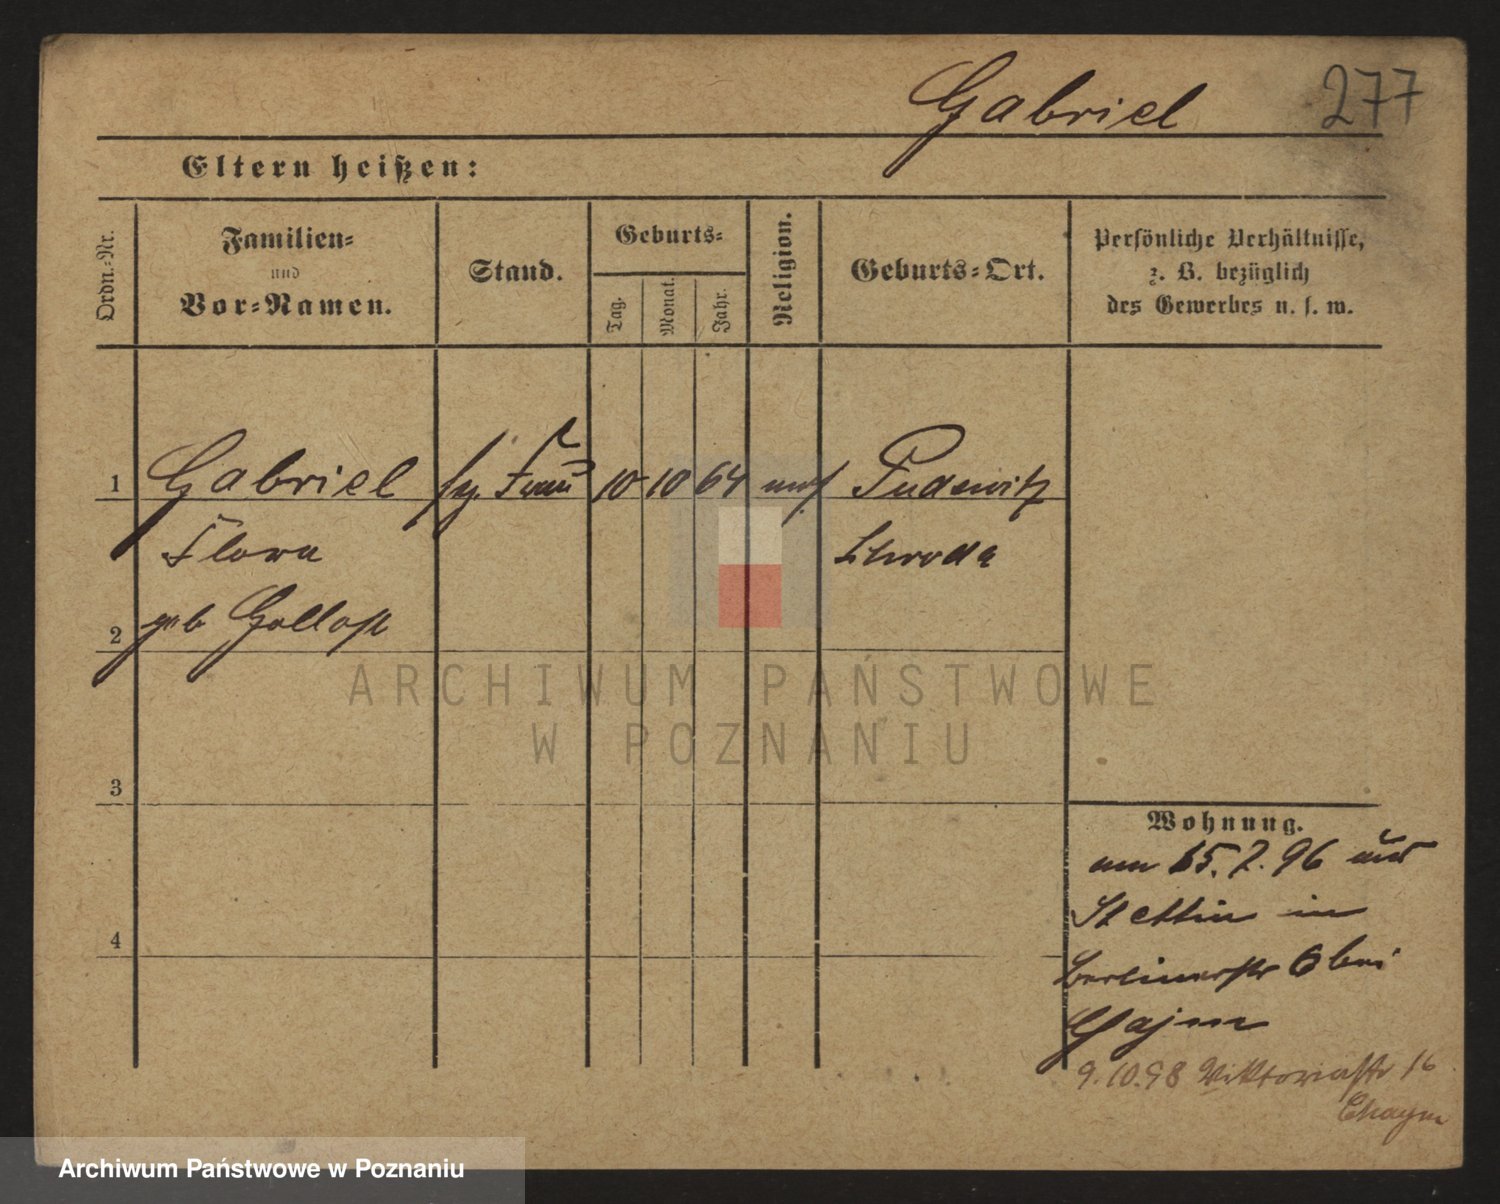 Gabriel 277
Eltern heißen:
Ordn.-Nr.
Familien-
und
Vor-Namen.
Stand.
Geburts-
Tag.
Monat.
Jahr.
Religion.
Geburts-Ort.
Persönliche Verhältnisse,
z. B. bezüglich
des Gewerbes u. s. w.
1 Gabriel Frau 10 10 64 mos Pudewitz
Flora Schroda
2 geb Gallop
3
4
Wohnung.
am 15.7.96 aus
Stettin in
Berlinerstr 6 bei
9.10.98 Viktoriastr 16
Chaym
ARCHIWUM PAŃSTWOWE
W POZNANIU
Archiwum Państwowe w Poznaniu